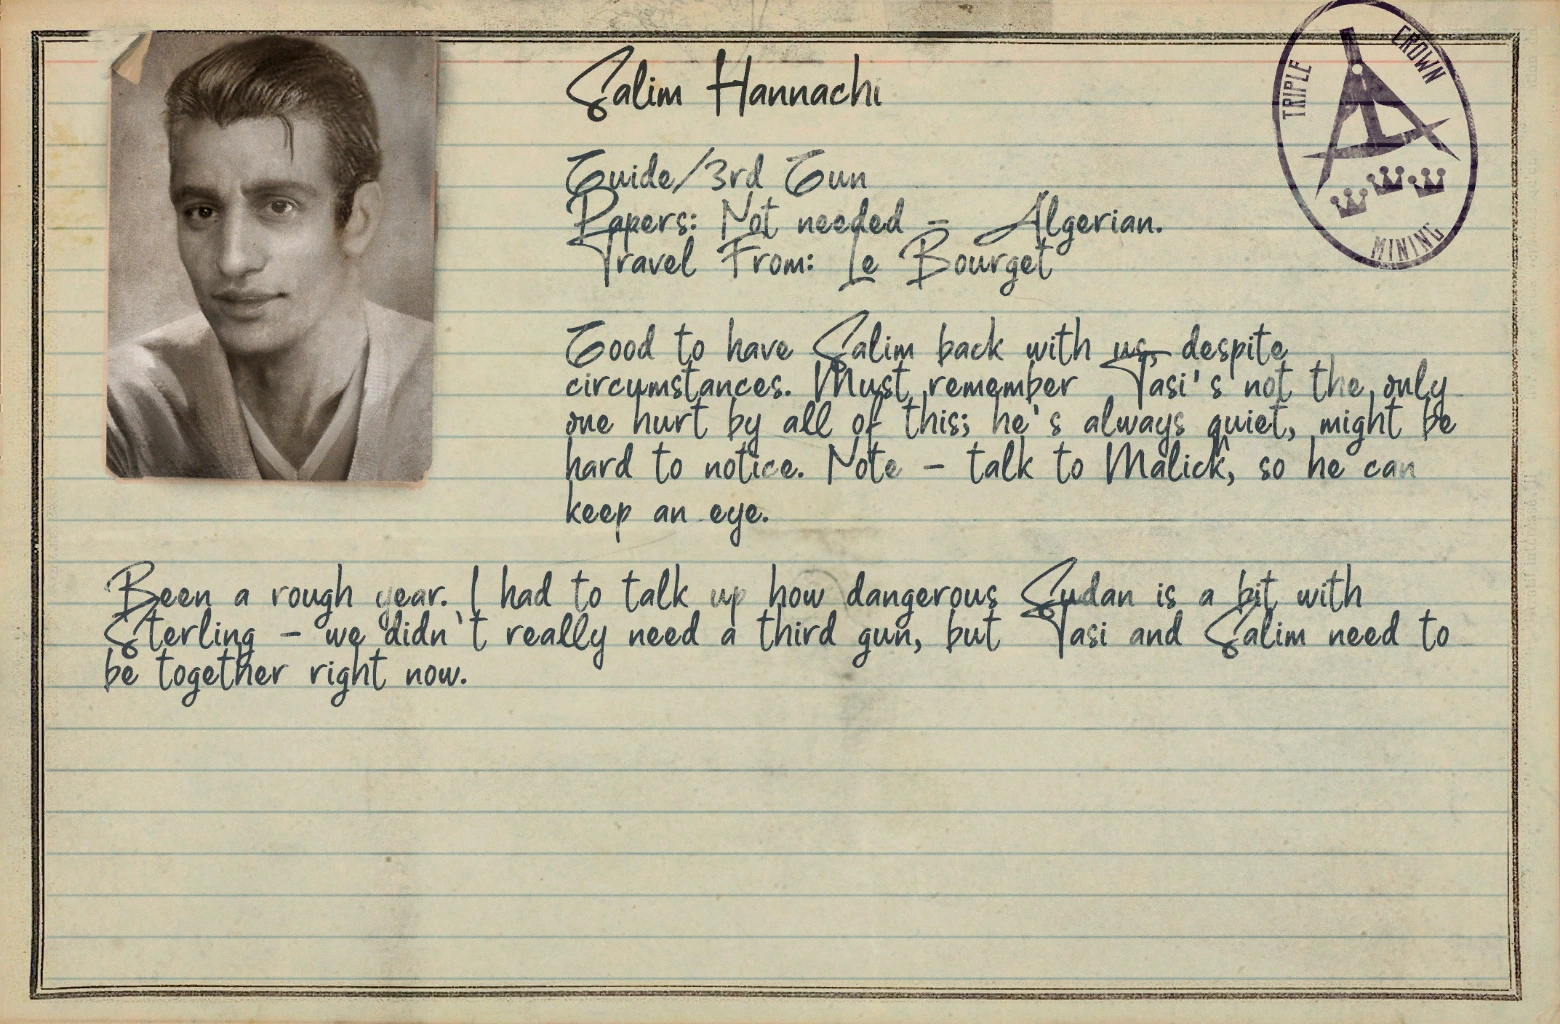 Salim Hannachi
TRIPLE CROWN
MINING
Guide/3rd Gun
Papers: Not needed - Algerian.
Travel From: Le Bourget
Good to have Salim back with us, despite
circumstances. Must remember Tasi's not the only
one hurt by all of this; he's always quiet, might be
hard to notice. Note - talk to Malick, so he can
keep an eye.
Been a rough year. I had to talk up how dangerous Sudan is a bit with
Sterling - we didn't really need a third gun, but Tasi and Salim need to
be together right now.